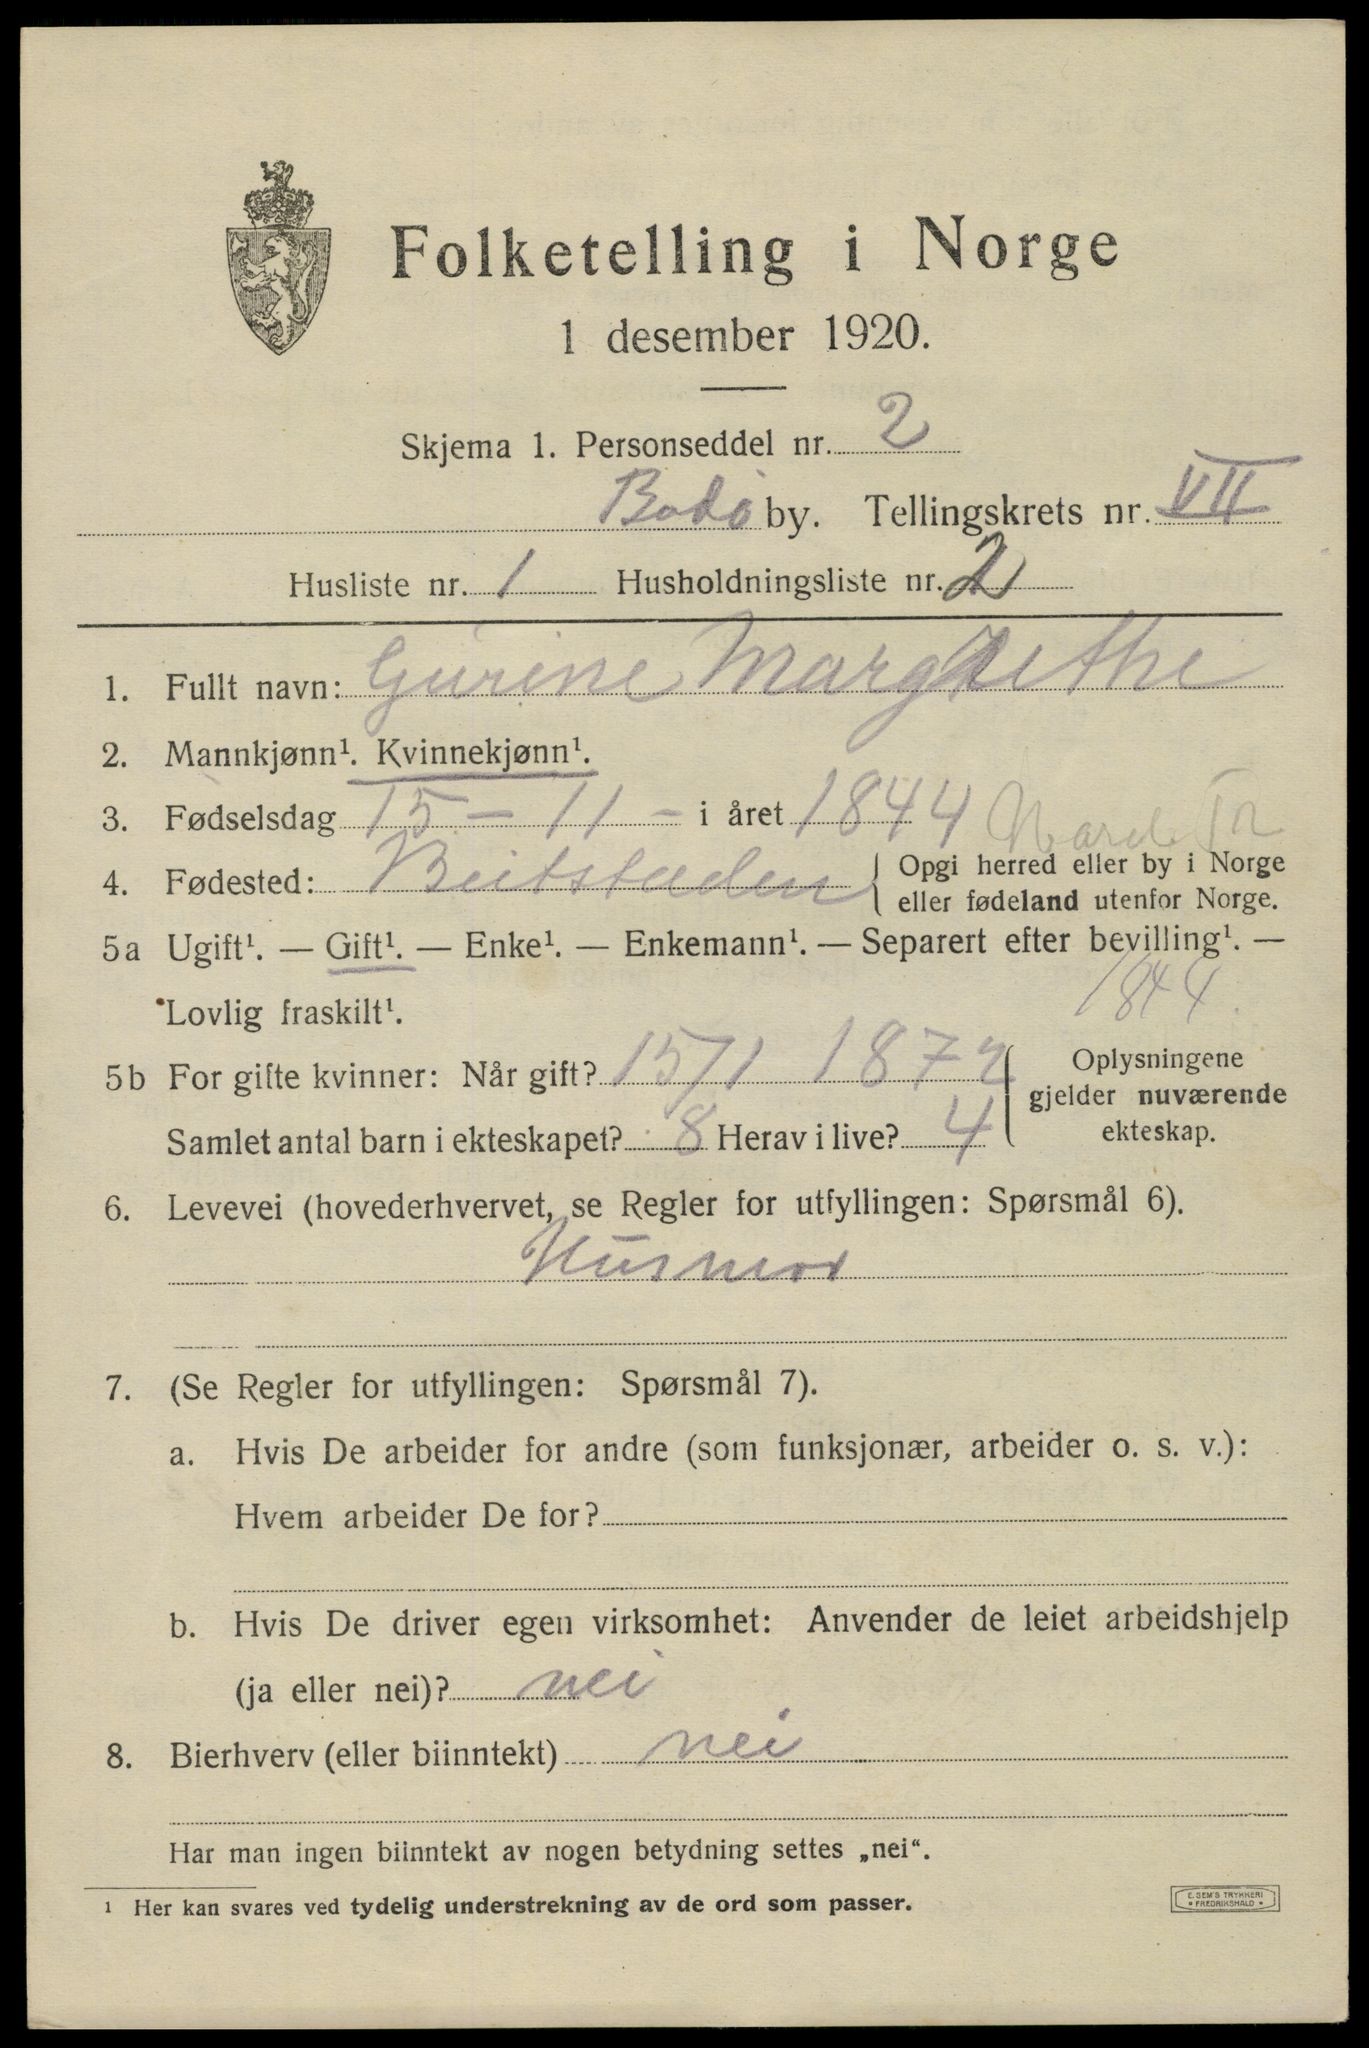 Folketelling i Norge
1 desember 1920.
Skjema 1. Personseddel nr. 2
Bodø by. Tellingskrets nr. VII
Husliste nr. 1 Husholdningsliste nr. 2
1. Fullt navn: Gurine Margrethe
2. Mannkjønn¹. Kvinnekjønn¹.
3. Fødselsdag 15 - 11 - i året 1844
4. Fødested: Beitstaden
Opgi herred eller by i Norge
eller fødeland utenfor Norge.
5a Ugift¹. — Gift¹. — Enke¹. — Enkemann¹. — Separert efter bevilling¹. —
Lovlig fraskilt¹.
1844.
5b For gifte kvinner: Når gift? 15/1 1872
Samlet antal barn i ekteskapet? 8 Herav i live? 4
Oplysningene
gjelder nuværende
ekteskap.
6. Levevei (hovederhvervet, se Regler for utfyllingen: Spørsmål 6).
Husmor
7. (Se Regler for utfyllingen: Spørsmål 7).
a. Hvis De arbeider for andre (som funksjonær, arbeider o. s. v.):
Hvem arbeider De for?
b. Hvis De driver egen virksomhet: Anvender de leiet arbeidshjelp
(ja eller nei)? nei
8. Bierhverv (eller biinntekt) nei
Har man ingen biinntekt av nogen betydning settes „nei“.
¹ Her kan svares ved tydelig understrekning av de ord som passer.
E. SEM'S TRYKKERI
FREDRIKSHALD